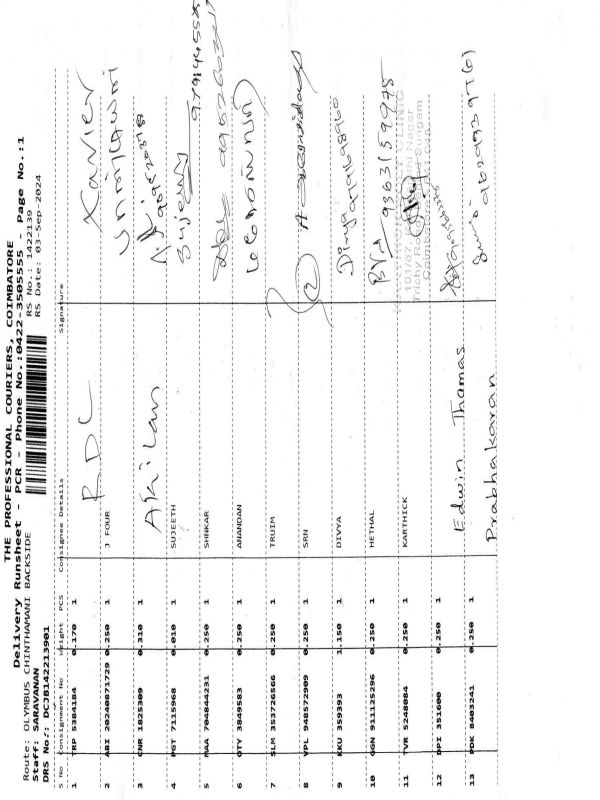 THE PROFESSIONAL COURIERS, COIMBATORE
Delivery Runsheet - PCR - Phone No.:0422-3505555 - Page No.:1
Route: OLYMBUS CHINTHAMANI BACKSIDE RS No.: 1422139
Staff: SARAVANAN RS Date: 03-Sep-2024
DRS No/: DCJB142213901
S No Consignment No Weight PCS Consignee Details Signature
1 TRP 5384184 0.170 1 RDC Xavier
2 ABI 20240871729 0.250 1 J FOUR
3 CNR 1825309 0.310 1 Akilan
4 PGT 7115968 0.010 1 SUJEETH
5 MAA 704844231 0.250 1 SHNKAR
6 OTY 3849583 0.250 1 ANANDAN
7 SLM 353726566 0.250 1 TRUIM
8 VPL 948572909 0.250 1 SRN
9 KKU 359393 1.150 1 DIVYA Divya
10 GGN 911125296 0.250 1 HETHAL
11 TVR 5248084 0.250 1 KARTHICK
12 DPI 351600 0.250 1 Edwin Thamas
13 PDK 8403241 0.250 1 Prabhakaran